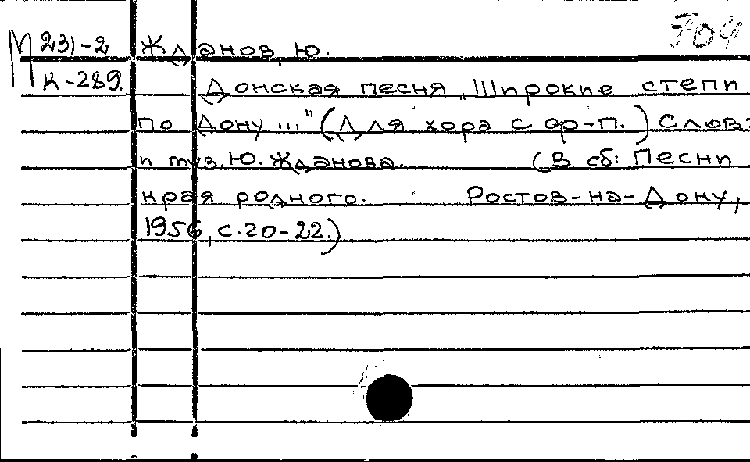 М 231-2 Жданов, Ю. 709
К-289. Донская песня „Широкие степи
по Дону..." (Для хора с ор-п.) Слова
и муз. Ю. Жданова. (В сб: Песни
края родного. Ростов-на-Дону,
1956, с. 20-22.)